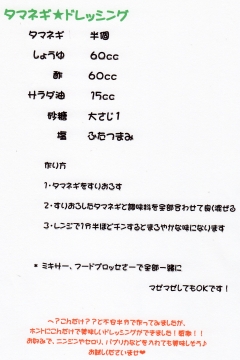 タマネギ★ドレッシング
タマネギ 半個
しょうゆ 60cc
酢 60cc
サラダ油 15cc
砂糖 大さじ1
塩 ふたつまみ
作り方
1・タマネギをすりおろす
2・すりおろしたタマネギと調味料を全部合わせて良く混ぜる
3・レンジで1分半ほどチンするとまろやかな味になります
* ミキサー、フードプロセッサーで全部一緒に
マゼマゼしてもOKです!
へ?こんだけ??と不安半分で作ってみましたが、
ホントにこんだけで美味しいドレッシングができました!簡単!!
お好みで、ニンジンやセロリ、パプリカなどを入れても美味しそう♪
お試しくださいませ♥